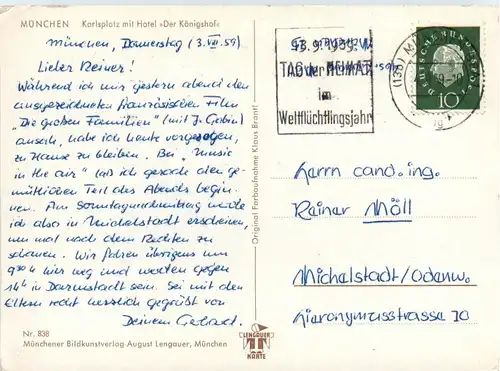 MÜNCHEN Karlsplatz mit Hotel »Der Königshof«
München, Donnerstag (3.VII.59)
Lieber Reiner!
Während ich mir gestern abend den
ausgezeichneten französischen Film
"Die großen Familien" (mit J. Gabin)
ansah, habe ich heute vorgezogen,
zu Hause zu bleiben. Bei "Music
in the air" las ich gerade den ge-
mütlichen Teil des Abends begin-
nen. Am Sonntagnachmittag werde
ich also in Michelstadt erscheinen,
um mal nach dem Rechten zu
schauen. Wir fahren übrigens um
9³⁰ʰ hier weg und werden gegen
14ʰ in Darmstadt sein. Sei mit den
Eltern recht herzlich gegrüßt von
Deinem Gerhard.
Nr. 838
Münchener Bildkunstverlag August Lengauer, München
Original Farbaufnahme Klaus Brantl
LENGAUER
KARTE
13.9.1959
TAG der HEIMAT
im
Weltflüchtlingsjahr
(13b)
DEUTSCHE BUNDESPOST
10
Herrn cand. ing.
Rainer Möll
Michelstadt/Odenw.
Hieronymusstrasse 10